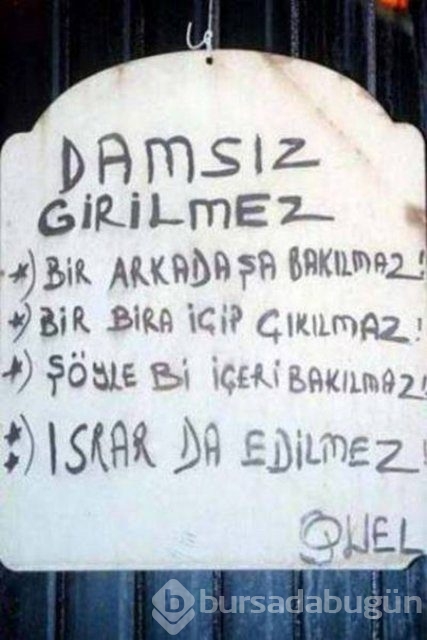 DAMSIZ
GİRİLMEZ
*) BİR ARKADAŞA BAKILMAZ!
*) BİR BİRA İÇİP ÇIKILMAZ!
*) ŞÖYLE Bİ İÇERİ BAKILMAZ!
*) ISRAR DA EDİLMEZ!
b bursadabugün